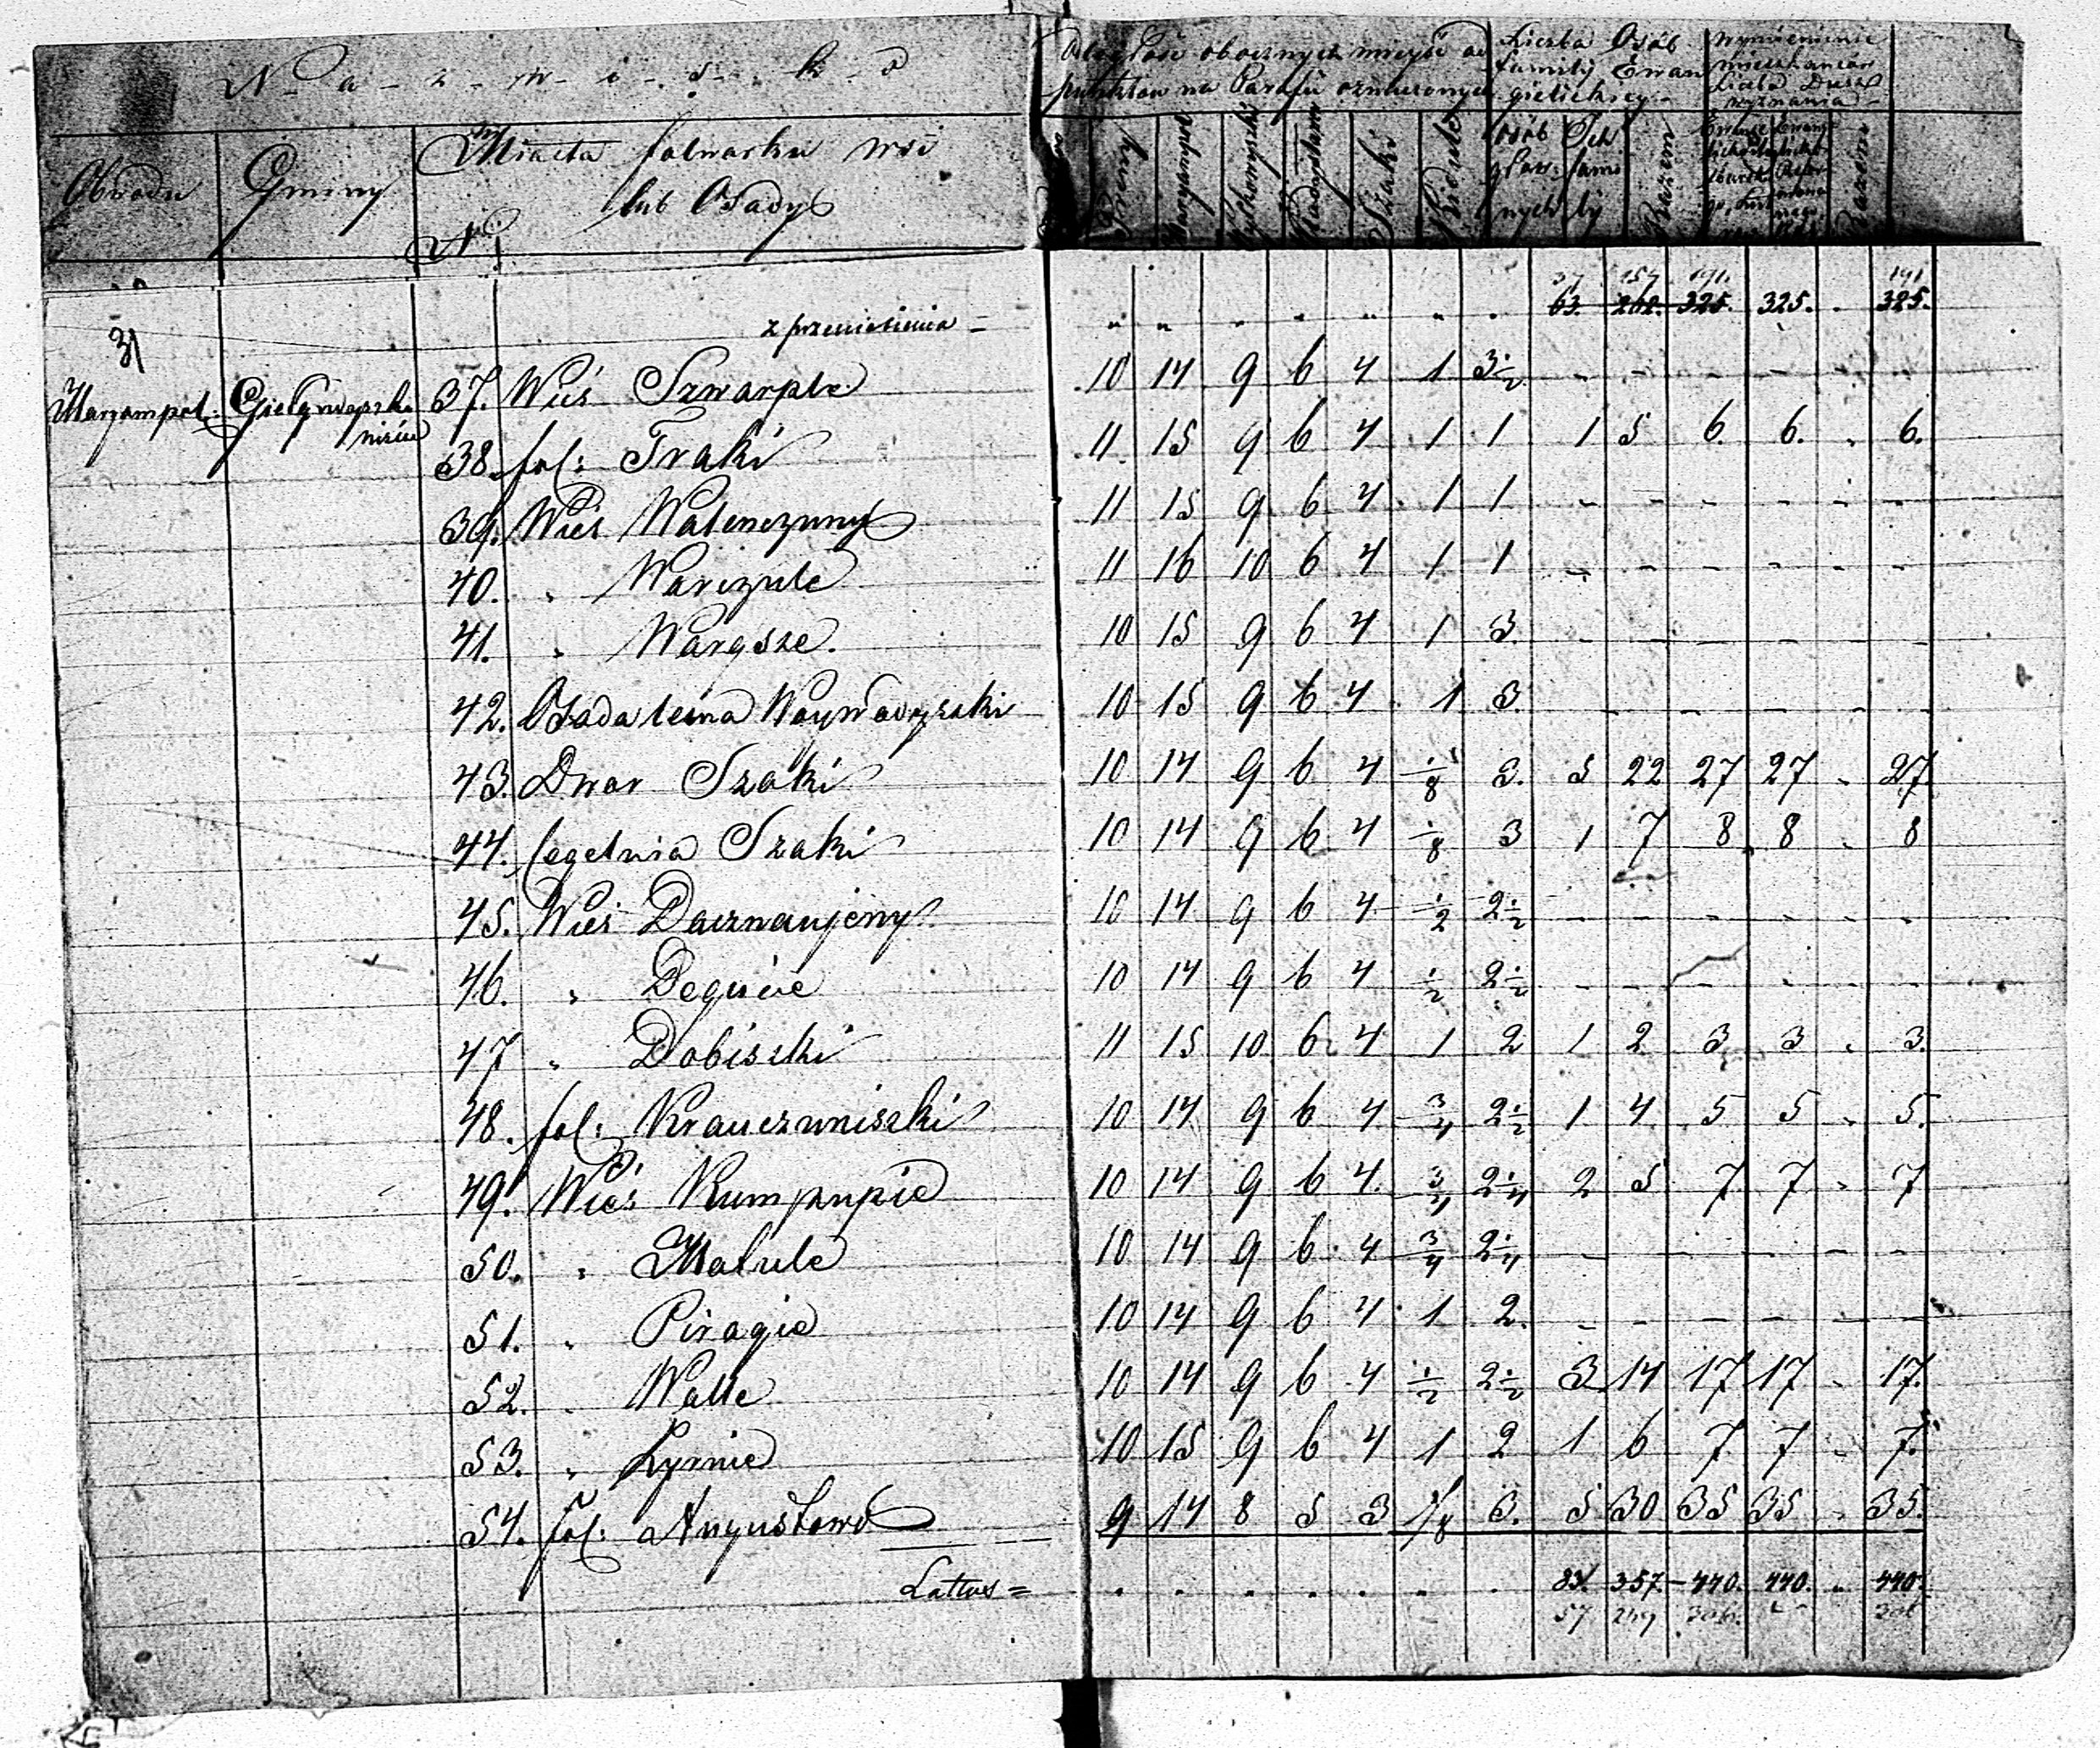 N - a - z - w - i - s - k - o
Odległość obocznych mieysc od
punktów na Parafią oznaczonych
Liczba Osób
familij Ewan
gielickiey
Wymienienie
mieszkańców
Liczba Dusz
wyznania
Obwodu
Gminy
Miasta folwarku wsi
lub Osady
N
Maryampol
Władysławow
Szaki
Osób
głow:
nych
Ich
fami
ly
Razem
Razem
z przeniesienia = " " " " " " " 63. 262. 325. 325. " 325.
37 157 191. 191
31
Maryampol. 37. Wieś Szwarple 10 14 9 6 4 1 3½ - - - - - -
38. fol: Traki 11 15 9 6 4 1 1 1 5 6. 6. " 6.
39. Wieś Walenczuny 11 15 9 6 4 1 1 - - - - - -
40. " Warczule 11 16 10 6 4 1 1 - - - - - -
41. " Wargsze. 10 15 9 6 4 1 3. - - - - - -
42. Osada leśna 10 15 9 6 4 1 3. - - - - - -
43. Dwor Szaki 10 14 9 6 4 1/8 3. 5 22 27 27 " 27
44. Cegelnia Szaki 10 14 9 6 4 1/8 3 1 7 8 8 " 8
45. Wieś Dacznaujeny 10 14 9 6 4 ½ 2½ - - - - - -
46. " Degucie 10 14 9 6 4 ½ 2½ - - - - - -
47 " Dobiszki 11 15 10 6 4 1 2 1 2 3 3 " 3.
48. fol: Krauczuniszki 10 14 9 6 4 ¾ 2½ 1 4 5 5 " 5.
49. Wieś Kumpupie 10 14 9 6 4 ¾ 2¼ 2 5 7 7 " 7
50. " Matule 10 14 9 6 4 ¾ 2¼ - - - - - -
51. " Piragie 10 14 9 6 4 1 2. - - - - - -
52. " Walle 10 14 9 6 4 ½ 2½ 3 14 17 17 " 17.
53. " Kyrnie 10 15 9 6 4 1 2 1 6 7 7 " 7.
54. fol: Augustowo 9 14 8 5 3 1/8 3. 5 30 35 35 " 35.
Lattus = " " " " " " " 83. 357. 440. 440. " 440.
57 249 306. 306